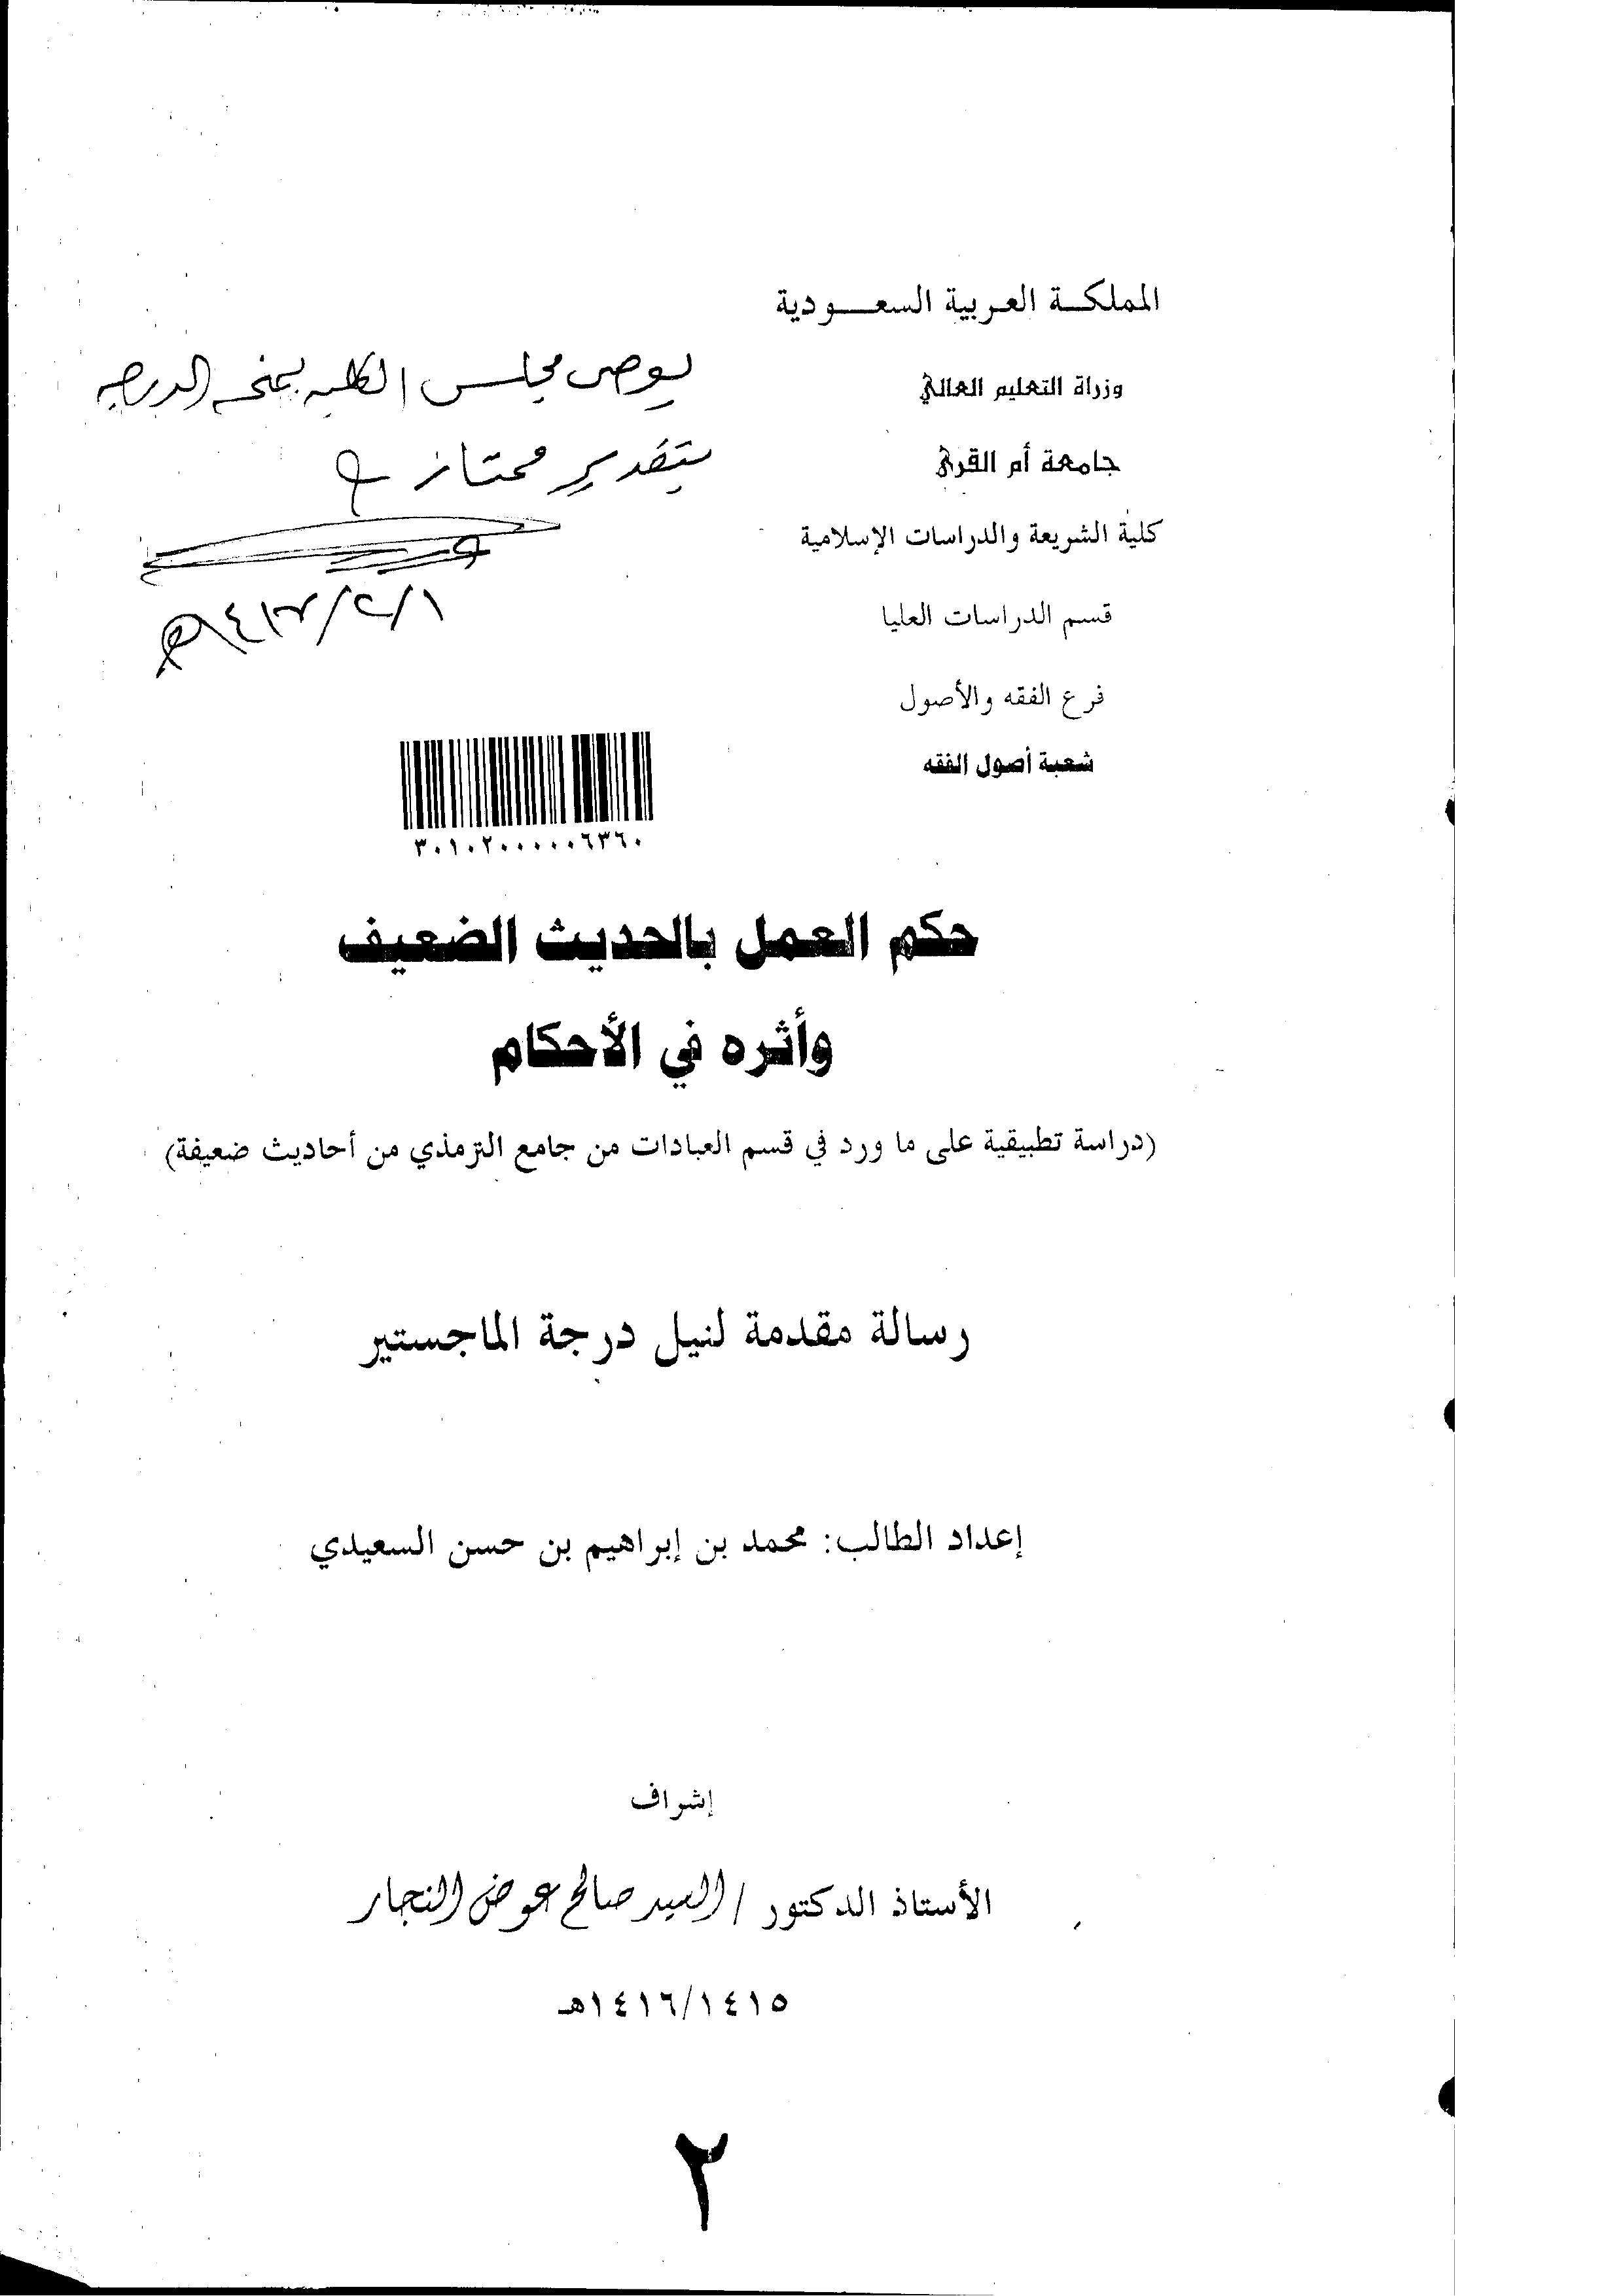 المملكة العربية السعودية
وزراة التعليم العالي
جامعة أم القرى
كلية الشريعة والدراسات الإسلامية
قسم الدراسات العليا
فرع الفقه والأصول
شعبة أصول الفقه
يوصى مجلس الكلية بمنحه الدرجة
بتقدير ممتاز
٣٠١٠٢٠٠٠٠٠٦٣٦٠
حكم العمل بالحديث الضعيف
وأثره في الأحكام
(دراسة تطبيقية على ما ورد في قسم العبادات من جامع الترمذي من أحاديث ضعيفة)
رسالة مقدمة لنيل درجة الماجستير
إعداد الطالب: محمد بن إبراهيم بن حسن السعيدي
إشراف
الأستاذ الدكتور / السيد صالح عوض النجار
١٤١٦/١٤١٥هـ
٢